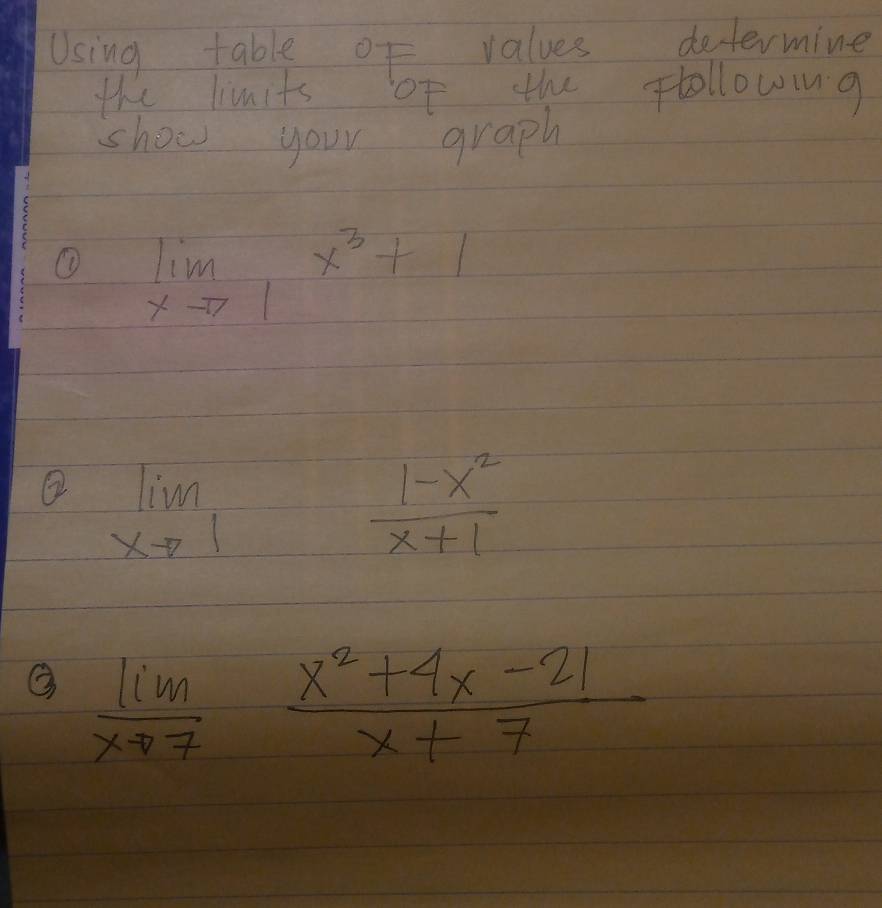 Using table of values determine
the limits of the following
show your graph
① lim x³ + 1
x → 1
② lim 1-x²
x → 1 x + 1
③ lim x² + 4x - 21
x → 7 x + 7